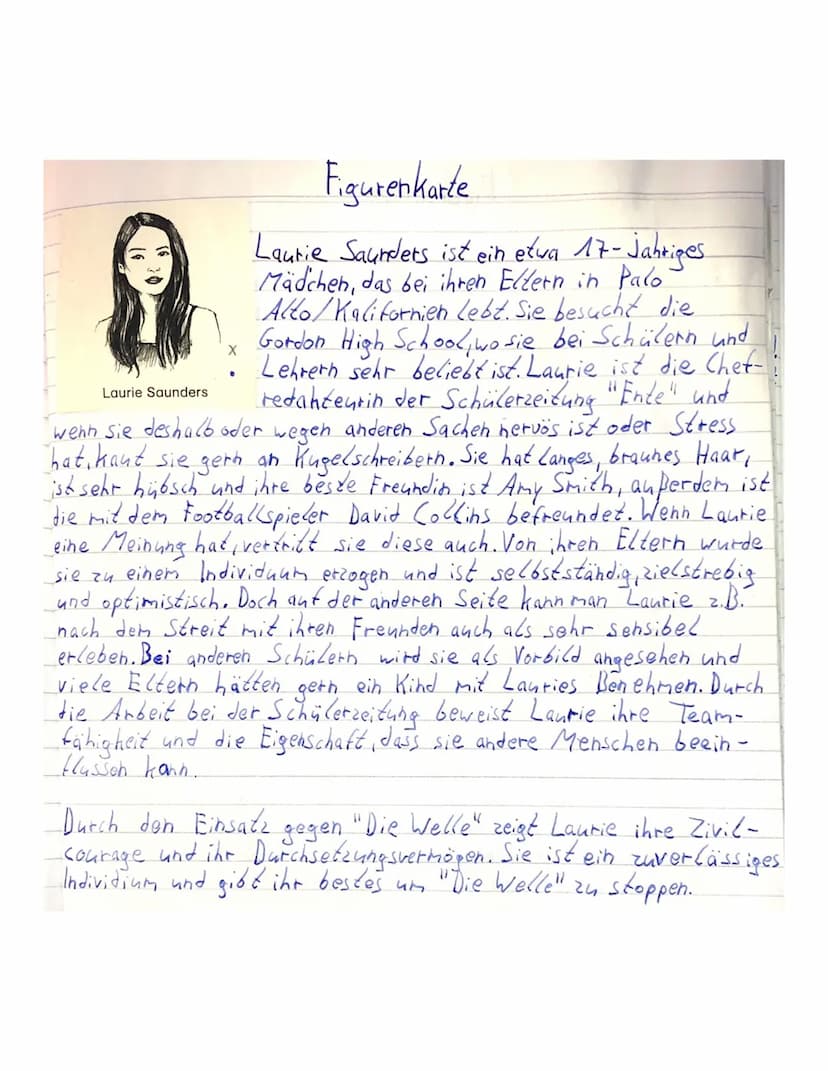 Figurenkarte
Laurie Saunders ist ein etwa 17-Jahriges
Mädchen, das bei ihren Eltern in Palo
Alto/Kalifornien lebt. Sie besucht die
Gordon High School, wo sie bei Schülern und
Lehrern sehr beliebt ist. Laurie ist die Chef-
redakteurin der Schülerzeitung "Ente" und
x
Laurie Saunders
wenn sie deshalb oder wegen anderen Sachen nervös ist oder Stress
hat, kaut sie gern an Kugelschreibern. Sie hat langes, braunes Haar,
ist sehr hübsch und ihre beste Freundin ist Amy Smith, außerdem ist
die mit dem Footballspieler David Collins befreundet. Wenn Laurie
eine Meinung hat, vertritt sie diese auch. Von ihren Eltern wurde
sie zu einem Individuum erzogen und ist selbstständig, zielstrebig
und optimistisch. Doch auf der anderen Seite kann man Laurie z.B.
nach dem Streit mit ihren Freunden auch als sehr sensibel
erleben. Bei anderen Schülern wird sie als Vorbild angesehen und
viele Eltern hätten gern ein Kind mit Lauries Benehmen. Durch
die Arbeit bei der Schülerzeitung beweist Laurie ihre Team-
fähigheit und die Eigenschaft, dass sie andere Menschen beein-
flussen kann.
Durch den Einsatz gegen "Die Welle" zeigt Laurie ihre Zivil-
courage und ihr Durchsetzungsvermögen. Sie ist ein zuverlässiges
Individium und gibt ihr bestes um "Die Welle" zu stoppen.